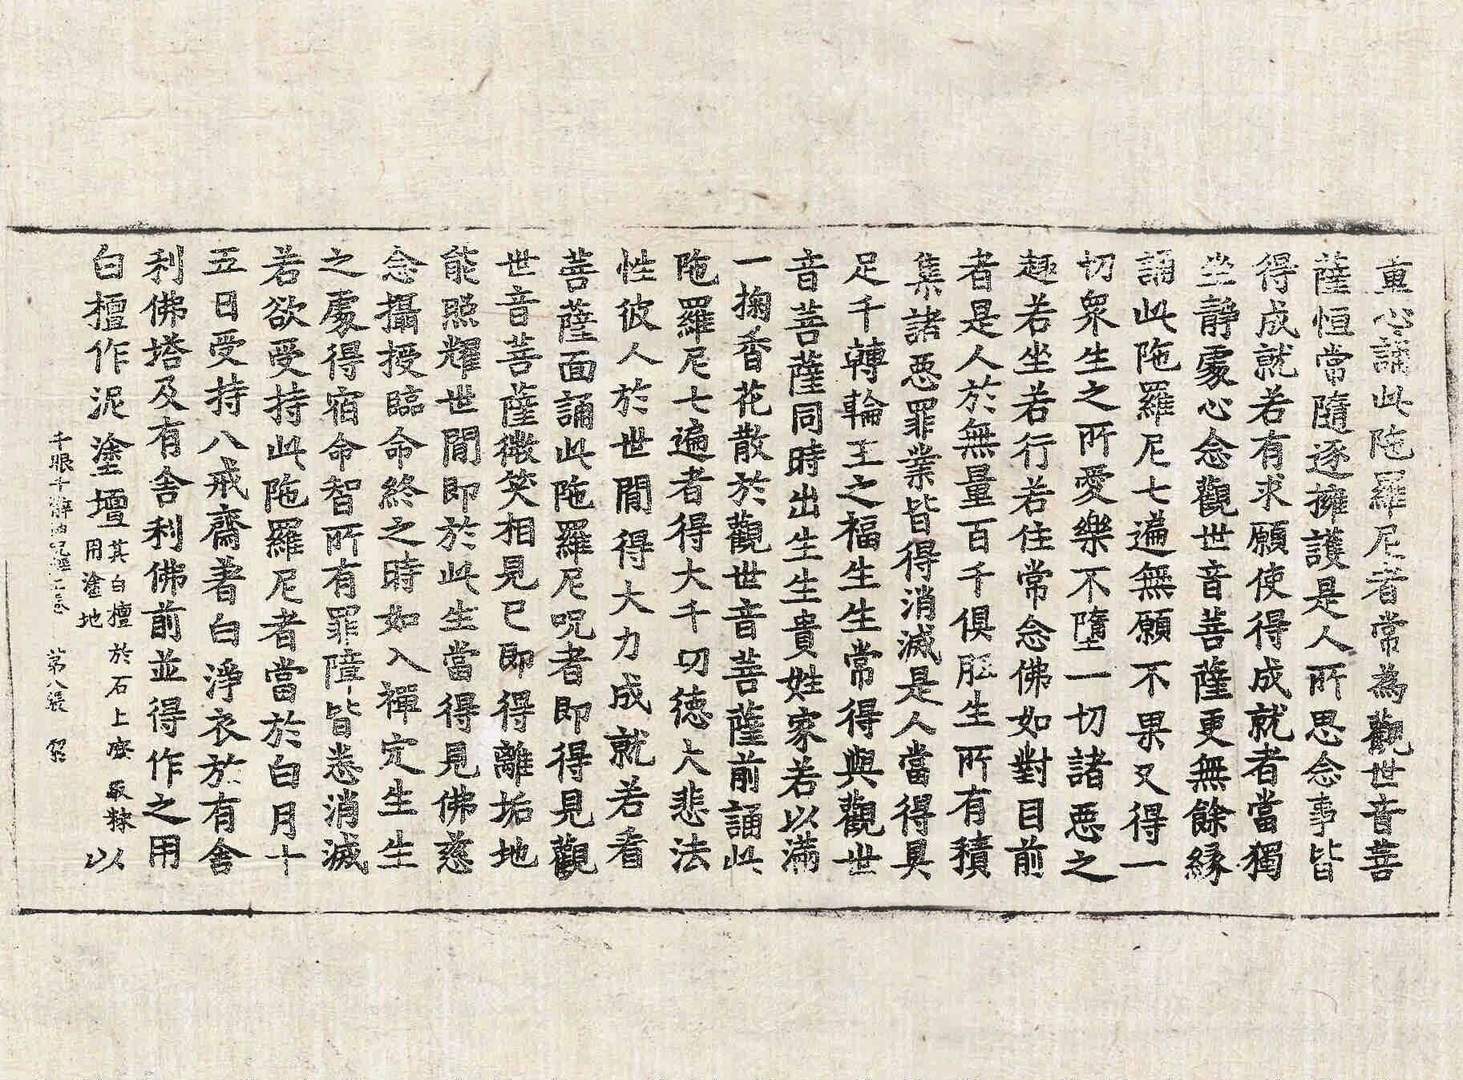 重心誦此陁羅尼者常為觀世音菩
薩恒當隨逐擁護是人所思念事皆
得成就若有求願使得成就者當獨
坐靜處心念觀世音菩薩更無餘緣
誦此陁羅尼七遍無願不果又得一
切眾生之所愛樂不墮一切諸惡之
趣若坐若行若住常念佛如對目前
者是人於無量百千俱胝生所有積
集諸惡罪業皆得消滅是人當得具
足千轉輪王之福生生常得與觀世
音菩薩同時出生生貴姓家若以滿
一掬香花散於觀世音菩薩前誦此
陁羅尼七遍者得大千切德大悲法
性彼人於世間得大力成就若看
菩薩面誦此陁羅尼呪者即得見觀
世音菩薩微笑相見已即得離垢地
能照耀世間即於此生當得見佛慈
念攝授臨命終之時如入禪定生生
之處得宿命智所有罪障皆悉消滅
若欲受持此陁羅尼者當於白月十
五日受持八戒齋著白淨衣於有舍
利佛塔及有舍利佛前並得作之用
白檀作泥塗壇其白檀於石上磨取㴝以用塗地
千眼千臂陁尼經上卷 第八張 詔